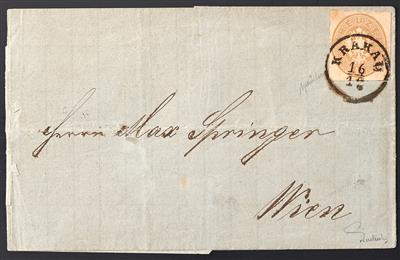 KRAKAU
16
12
Herrn Max Springer
Wien